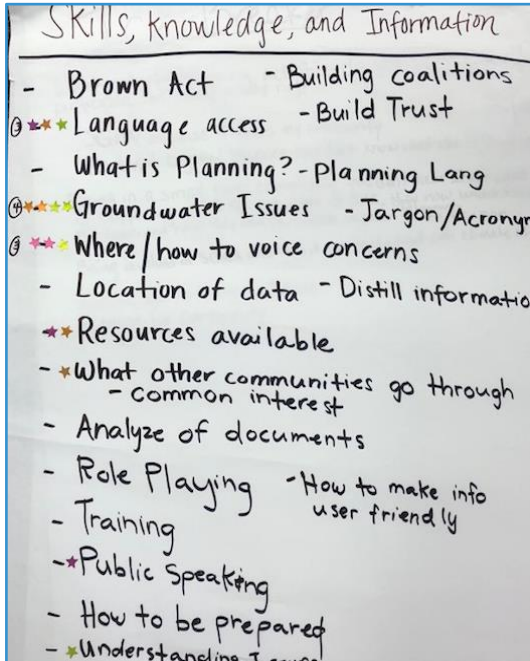 Skills, Knowledge, and Information
- Brown Act - Building coalitions
③ Language access - Build Trust
- What is Planning? - Planning Lang
④ Groundwater Issues - Jargon/Acronym
③ Where/how to voice concerns
- Location of data - Distill informatio
Resources available
- What other communities go through
- common interest
- Analyze of documents
- Role Playing - How to make info
user friendly
- Training
- Public Speaking
- How to be prepared
- Understanding